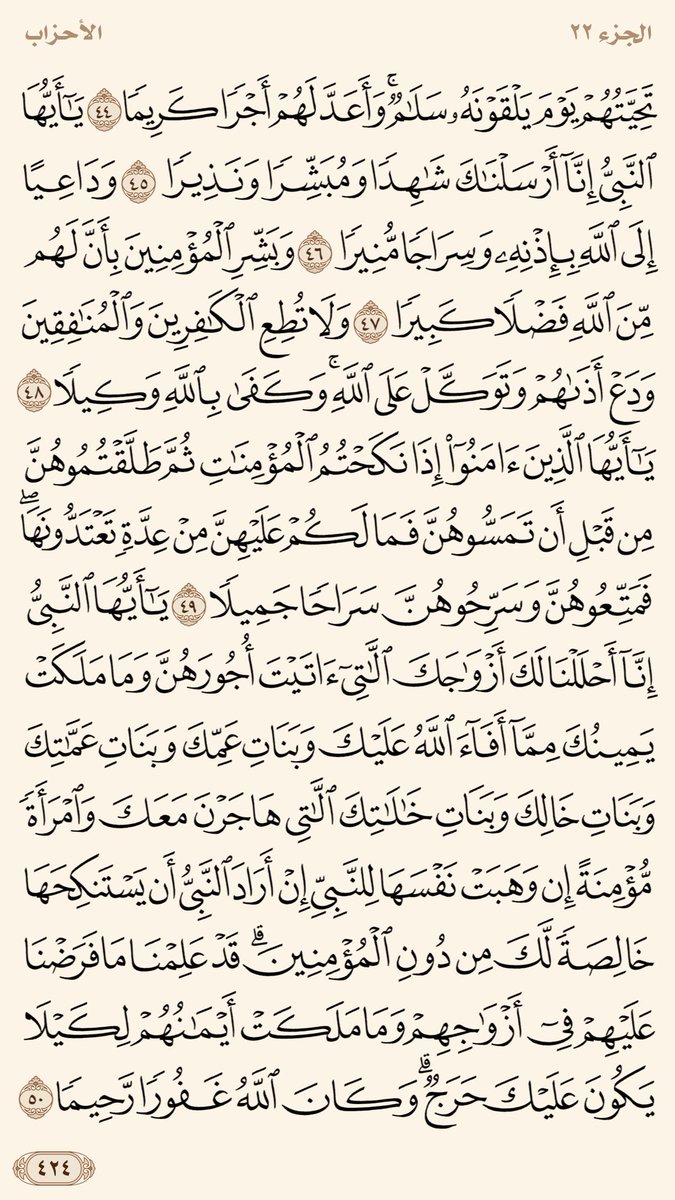 الجزء ٢٢
الأحزاب
تَحِيَّتُهُمْ يَوْمَ يَلْقَوْنَهُۥ سَلَٰمٌۚ وَأَعَدَّ لَهُمْ أَجْرًا كَرِيمًا ٤٤ يَٰٓأَيُّهَا
ٱلنَّبِيُّ إِنَّآ أَرْسَلْنَٰكَ شَٰهِدًا وَمُبَشِّرًا وَنَذِيرًا ٤٥ وَدَاعِيًا
إِلَى ٱللَّهِ بِإِذْنِهِۦ وَسِرَاجًا مُّنِيرًا ٤٦ وَبَشِّرِ ٱلْمُؤْمِنِينَ بِأَنَّ لَهُم
مِّنَ ٱللَّهِ فَضْلًا كَبِيرًا ٤٧ وَلَا تُطِعِ ٱلْكَٰفِرِينَ وَٱلْمُنَٰفِقِينَ
وَدَعْ أَذَىٰهُمْ وَتَوَكَّلْ عَلَى ٱللَّهِۚ وَكَفَىٰ بِٱللَّهِ وَكِيلًا ٤٨
يَٰٓأَيُّهَا ٱلَّذِينَ ءَامَنُوٓا۟ إِذَا نَكَحْتُمُ ٱلْمُؤْمِنَٰتِ ثُمَّ طَلَّقْتُمُوهُنَّ
مِن قَبْلِ أَن تَمَسُّوهُنَّ فَمَا لَكُمْ عَلَيْهِنَّ مِنْ عِدَّةٍ تَعْتَدُّونَهَاۖ
فَمَتِّعُوهُنَّ وَسَرِّحُوهُنَّ سَرَاحًا جَمِيلًا ٤٩ يَٰٓأَيُّهَا ٱلنَّبِيُّ
إِنَّآ أَحْلَلْنَا لَكَ أَزْوَٰجَكَ ٱلَّٰتِىٓ ءَاتَيْتَ أُجُورَهُنَّ وَمَا مَلَكَتْ
يَمِينُكَ مِمَّآ أَفَآءَ ٱللَّهُ عَلَيْكَ وَبَنَاتِ عَمِّكَ وَبَنَاتِ عَمَّٰتِكَ
وَبَنَاتِ خَالِكَ وَبَنَاتِ خَٰلَٰتِكَ ٱلَّٰتِى هَاجَرْنَ مَعَكَ وَٱمْرَأَةً
مُّؤْمِنَةً إِن وَهَبَتْ نَفْسَهَا لِلنَّبِيِّ إِنْ أَرَادَ ٱلنَّبِيُّ أَن يَسْتَنكِحَهَا
خَالِصَةً لَّكَ مِن دُونِ ٱلْمُؤْمِنِينَۗ قَدْ عَلِمْنَا مَا فَرَضْنَا
عَلَيْهِمْ فِىٓ أَزْوَٰجِهِمْ وَمَا مَلَكَتْ أَيْمَٰنُهُمْ لِكَيْلَا
يَكُونَ عَلَيْكَ حَرَجٌۗ وَكَانَ ٱللَّهُ غَفُورًا رَّحِيمًا ٥٠
٤٢٤